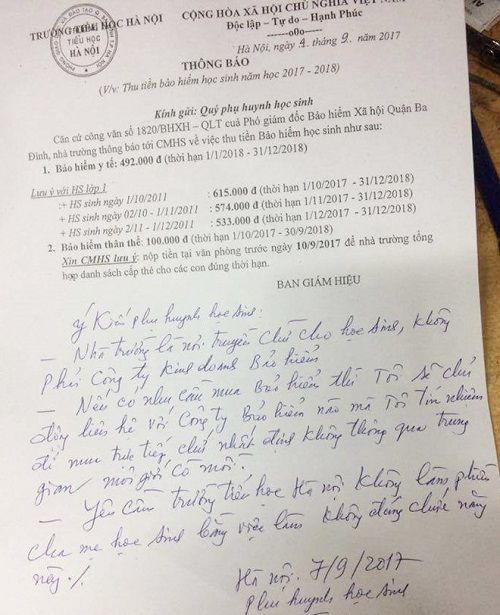 TRƯỜNG TIỂU HỌC HÀ NỘI
TRƯỜNG
TIỂU HỌC
HÀ NỘI
CỘNG HÒA XÃ HỘI CHỦ NGHĨA VIỆT NAM
Độc lập - Tự do - Hạnh Phúc
------o0o------
Hà Nội, ngày 4 tháng 9 năm 2017
THÔNG BÁO
(V/v: Thu tiền bảo hiểm học sinh năm học 2017 - 2018)
Kính gửi: Quý phụ huynh học sinh
Căn cứ công văn số 1820/BHXH – QLT cuả Phó giám đốc Bảo hiểm Xã hội Quận Ba
Đình, nhà trường thông báo tới CMHS về việc thu tiền Bảo hiểm học sinh như sau:
1. Bảo hiểm y tế: 492.000 đ (thời hạn 1/1/2018 - 31/12/2018)
Lưu ý với HS lớp 1
:+ HS sinh ngày 1/10/2011 : 615.000 đ (thời hạn 1/10/2017 - 31/12/2018)
+ HS sinh ngày 02/10 - 1/11/2011 : 574.000 đ (thời hạn 1/11/2017 - 31/12/2018)
+ HS sinh ngày 2/11 - 1/12/2011 : 533.000 đ (thời hạn 1/12/2017 - 31/12/2018)
2. Bảo hiểm thân thể: 100.000 đ (thời hạn 1/10/2017 - 30/9/2018)
Xin CMHS lưu ý: nộp tiền tại văn phòng trước ngày 10/9/2017 để nhà trường tổng
hợp danh sách cấp thẻ cho các con đúng thời hạn.
BAN GIÁM HIỆU
Ý Kiến phụ huynh học sinh:
– Nhà trường là nơi truyền chữ cho học sinh, không
phải Công ty kinh doanh Bảo hiểm
– Nếu có nhu cầu mua Bảo hiểm thì Tôi sẽ chủ
động liên hệ với Công ty Bảo hiểm nào mà Tôi tín nhiệm
để mua trực tiếp, chứ nhất định không thông qua trung
gian môi giới cò mồi.
– Yêu cầu trường tiểu học Hà Nội không làm phiền
cha mẹ học sinh bằng việc làm không đúng chức năng
này ./.
Hà Nội. 7/9/2017
Phụ huynh học sinh